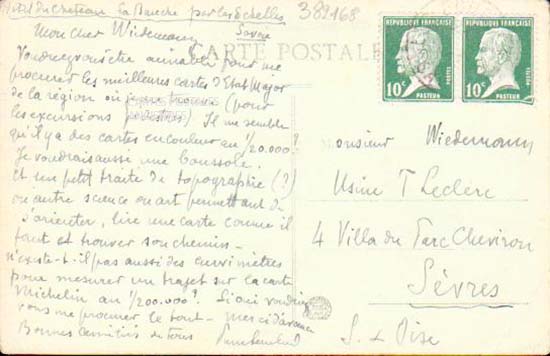 Hôtel du Château La Bauche par les Echelles
Savoie
389168
Mon cher Wiedemann
CARTE POSTALE
Voudriez-vous être aimable pour me
procurer les meilleures cartes d'Etat Major
de la région où nous sommes (pour
les excursions pédestres) Il me semble
qu'il y a des cartes en couleur au 1/20.000?
Je voudrais aussi une boussole.
Et un petit traité de topographie (?)
ou autre science ou art permettant de
s'orienter, lire une carte comme il
faut et trouver son chemin -
n'existe-t-il pas aussi des curvimètres
pour mesurer un trajet sur la carte
Michelin au 1/200.000? Si oui voudriez
vous me procurer le tout - merci d'avance
Bonnes amitiés de tous
REPUBLIQUE FRANÇAISE
POSTES
10c
PASTEUR
REPUBLIQUE FRANÇAISE
POSTES
10c
PASTEUR
Monsieur Wiedemann
Usine T Leclerc
4 Villa du Parc Cheviron
Sèvres
S. & Oise